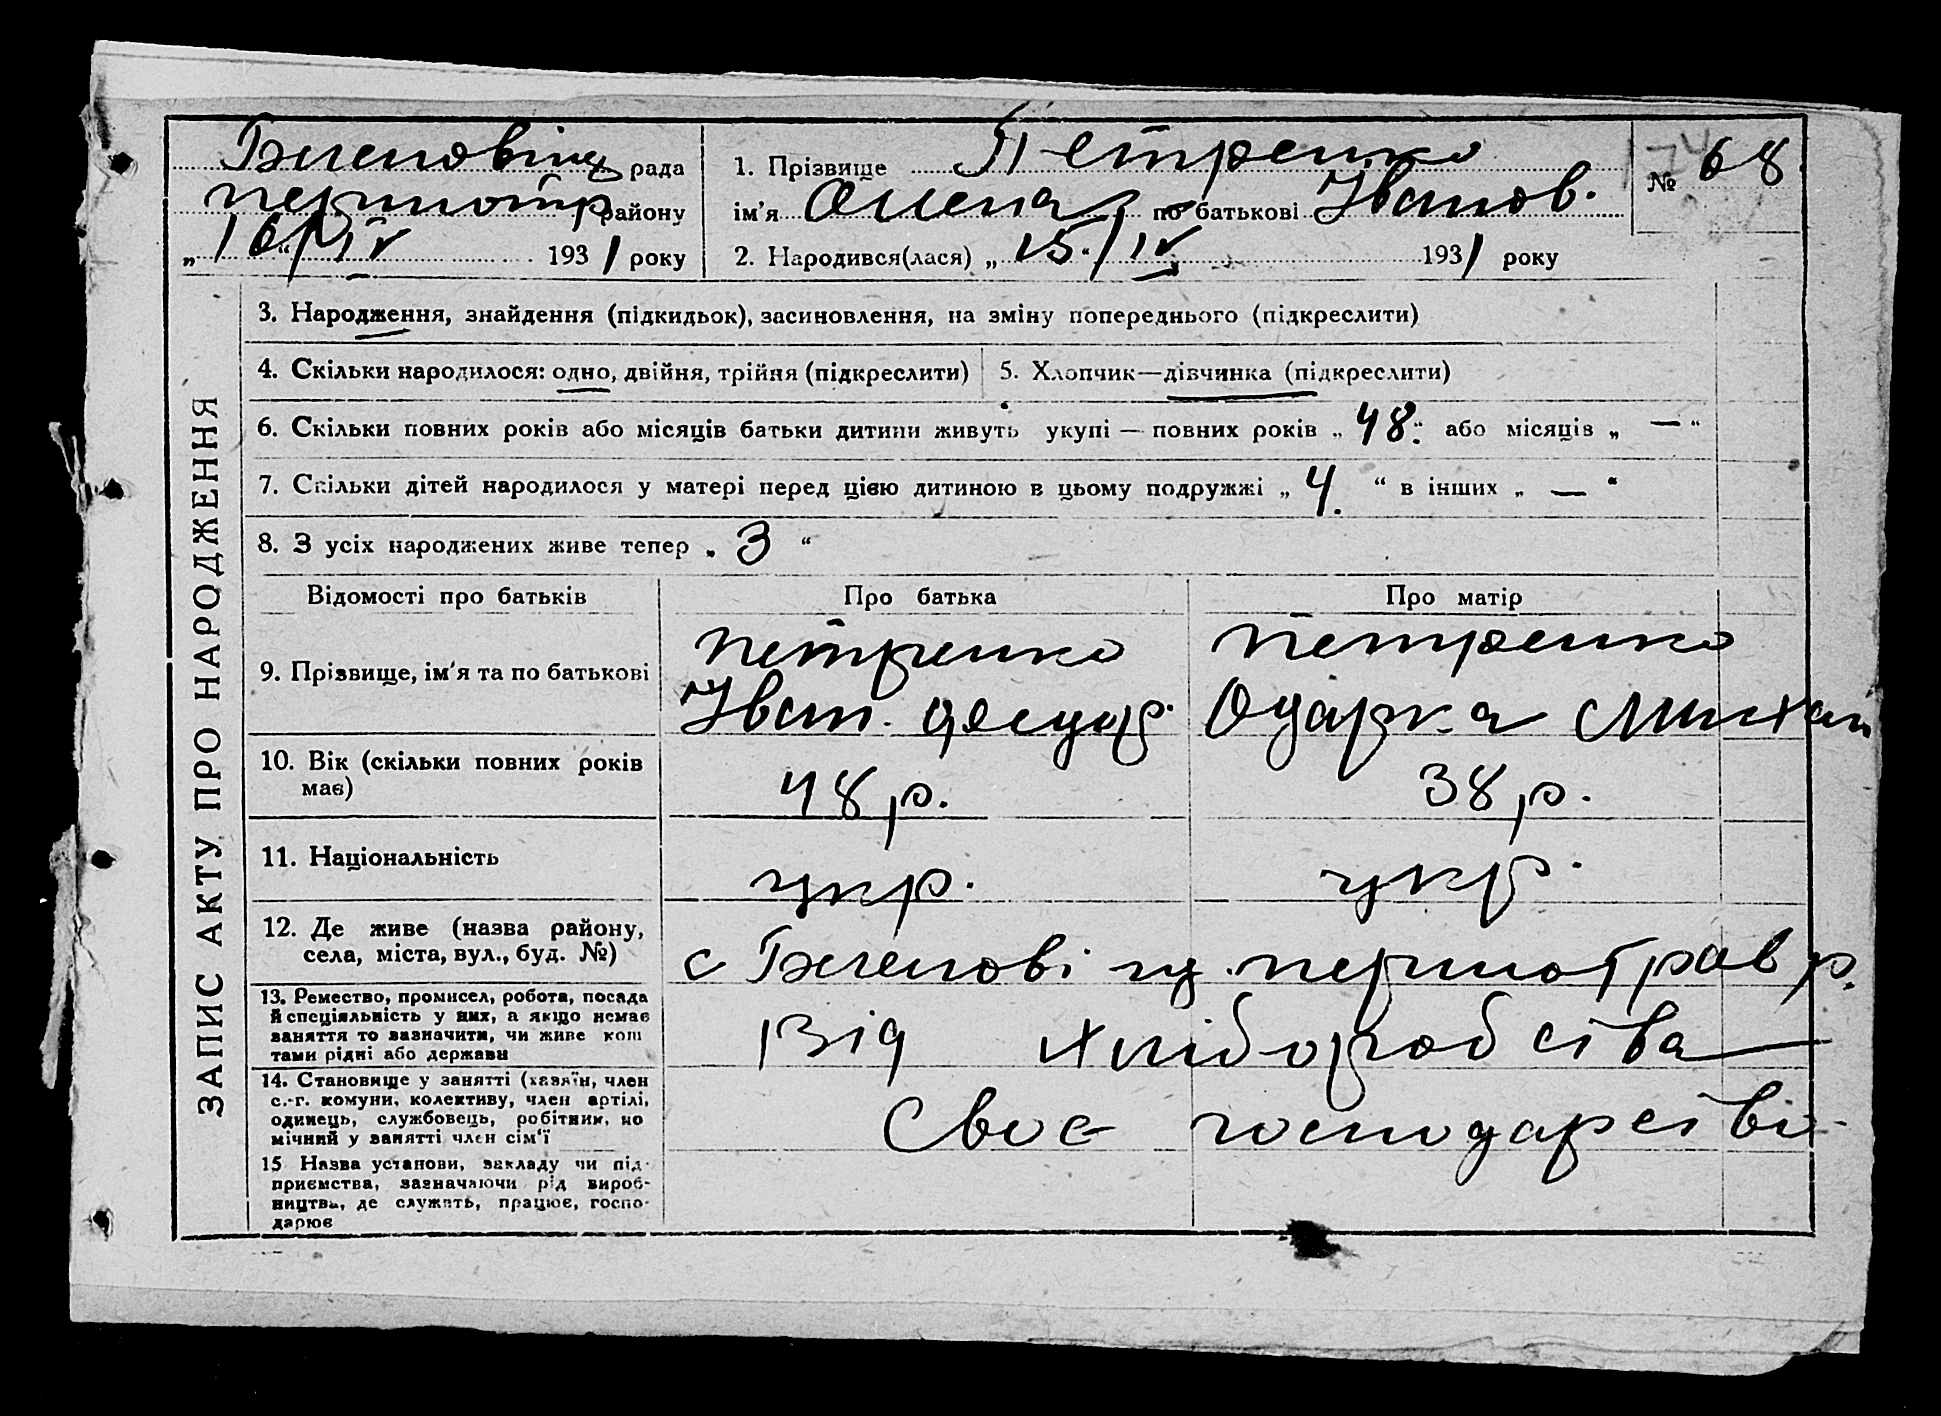 рада
1. Прізвище Петренко
№ 68
району
ім'я Олена по батькові Іванов.
„ 16/IV “ 1931 року
2. Народився(лася) „ 15 “ /IV 1931 року
ЗАПИС АКТУ ПРО НАРОДЖЕННЯ
3. Народження, знайдення (підкидьок), засиновлення, на зміну попереднього (підкреслити)
4. Скільки народилося: одно, двійня, трійня (підкреслити)
5. Хлопчик—дівчинка (підкреслити)
6. Скільки повних років або місяців батьки дитини живуть укупі — повних років „ 48 “ або місяців „ — “
7. Скільки дітей народилося у матері перед цією дитиною в цьому подружжі „ 4. “ в інших „ — “
8. З усіх народжених живе тепер „ 3 “
Відомості про батьків
Про батька
Про матір
9. Прізвище, ім'я та по батькові
Петренко
Іван.
Петренко
Одарка
10. Вік (скільки повних років
має)
48 р.
38 р.
11. Національність
укр.
укр.
12. Де живе (назва району,
села, міста, вул., буд. №)
с
13. Ремество, промисел, робота, посада
й спеціяльність у них, а якщо немає
заняття то зазначити, чи живе кош
тами рідні або держави
Від хліборобства
14. Становище у занятті (хазяїн, член
с.-г. комуни, колективу, член артілі,
одинець, службовець, робітник, по
мічний у занятті член сім'ї
Своє господарство
15 Назва установи, закладу чи під-
приємства, зазначаючи рід вироб-
ництва, де служить, працює, госпо-
дарює